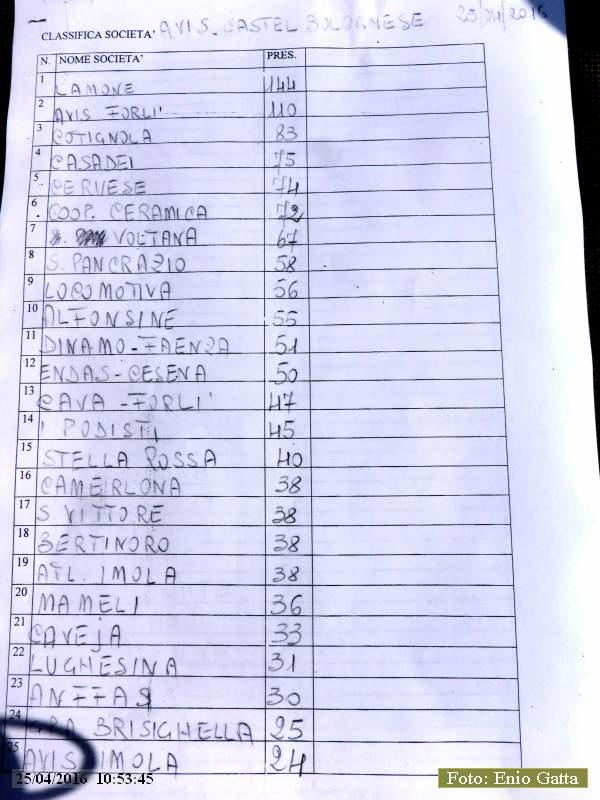 CLASSIFICA SOCIETA' AVIS. CASTEL BOLOGNESE 25/04/2016
N. NOME SOCIETA' PRES.
1 LAMONE 144
2 AVIS FORLI' 110
3 COTIGNOLA 83
4 CASADEI 75
5 CERVESE 74
6 COOP. CERAMICA 72
7 VOLTANA 67
8 S. PANCRAZIO 58
9 LOCOMOTIVA 56
10 ALFONSINE 55
11 DINAMO-FAENZA 51
12 ENDAS-CESENA 50
13 CAVA-FORLI' 47
14 I PODISTI 45
15 STELLA ROSSA 40
16 CAMERLONA 38
17 S. VITTORE 38
18 BERTINORO 38
19 ATL. IMOLA 38
20 MAMELI 36
21 CAVEJA 33
22 LUGHESINA 31
23 ANFFAS 30
24 BRISIGHELLA 25
25 AVIS IMOLA 24
25/04/2016 10:53:45
Foto: Enio Gatta